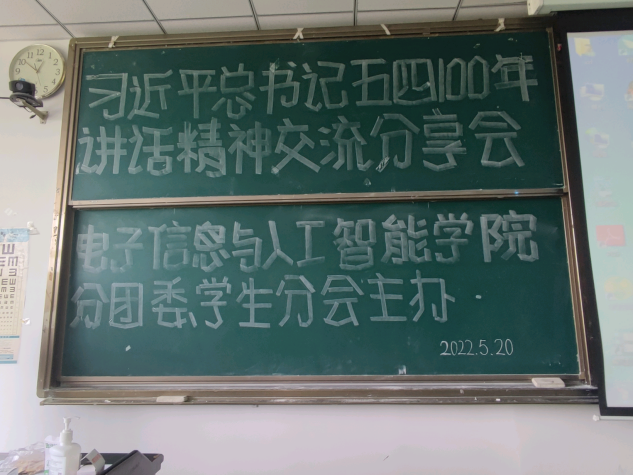 习近平总书记五四100年
讲话精神交流分享会
电子信息与人工智能学院
分团委学生分会主办
2022.5.20